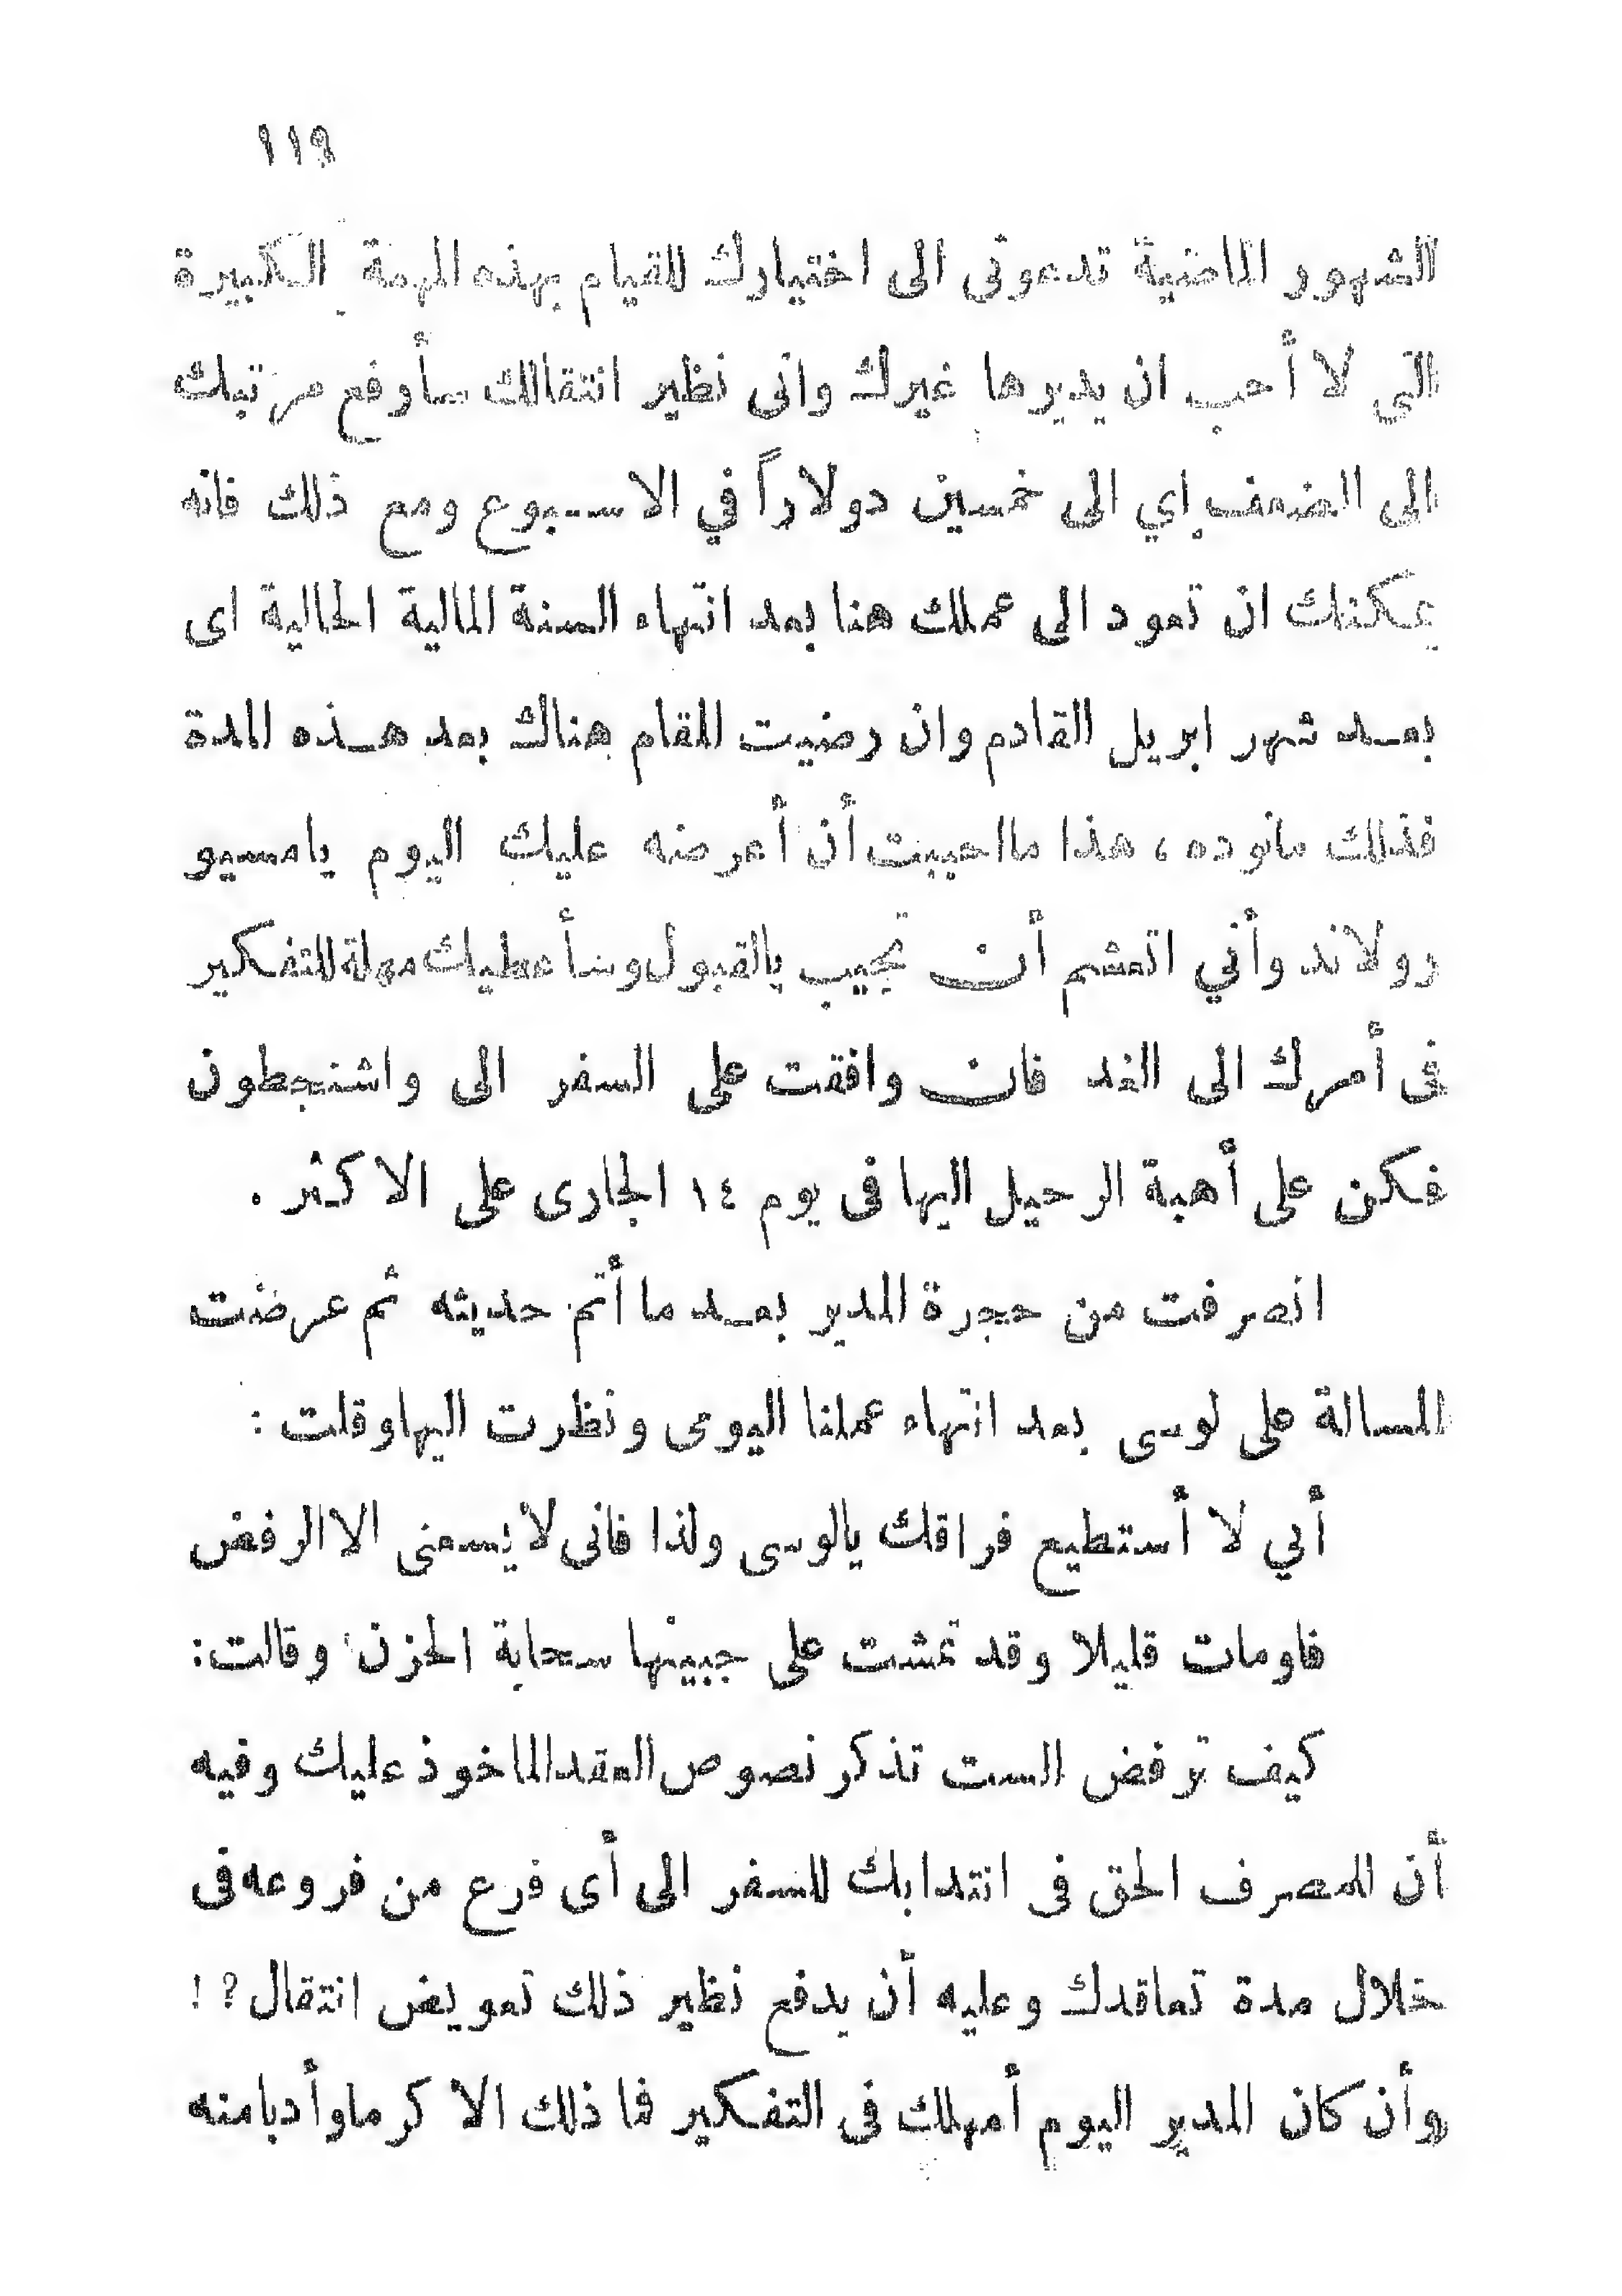 ١١٩
الشهور الماضية تدعوني الى اختيارك للقيام بهذه المهمة الكبيرة
التي لا أحب ان يديرها غيرك واني نظير انتقالك سأرفع مرتبك
الى الضعف إي الى خمسين دولاراً في الاسبوع ومع ذلك فانه
يمكنك ان تعود الى عملك هنا بعد انتهاء السنة المالية الحالية اى
بعد شهر ابريل القادم وان رضيت المقام هناك بعد هذه المدة
فذلك مانوده ، هذا مااحببت أن أعرضه عليك اليوم يامسيو
رولاند وأني اتعشم أن تجيب بالقبول وسأعطيك مهلة للتفكير
فى أمرك الى الغد فان وافقت على السفر الى واشنجطون
فكن على أهبة الرحيل اليها فى يوم ١٤ الجارى على الاكثر .
انصرفت من حجرة المدير بعد ما أتم حديثه ثم عرضت
المسالة على لوسى بعد انتهاء عملنا اليومى ونظرت اليها وقلت :
أني لا أستطيع فراقك يالوسى ولذا فانى لا يسعنى الا الرفض
فاومات قليلا وقد تمشت على جبينها سحابة الحزن وقالت :
كيف ترفض الست تذكر نصوص العقد الماخوذ عليك وفيه
أن للمصرف الحق فى انتدابك للسفر الى أى فرع من فروعه فى
خلال مدة تعاقدك وعليه أن يدفع نظير ذلك تعويض انتقال ؟ !
وأن كان المدير اليوم أمهلك فى التفكير فما ذلك الا كرما وأدبا منه